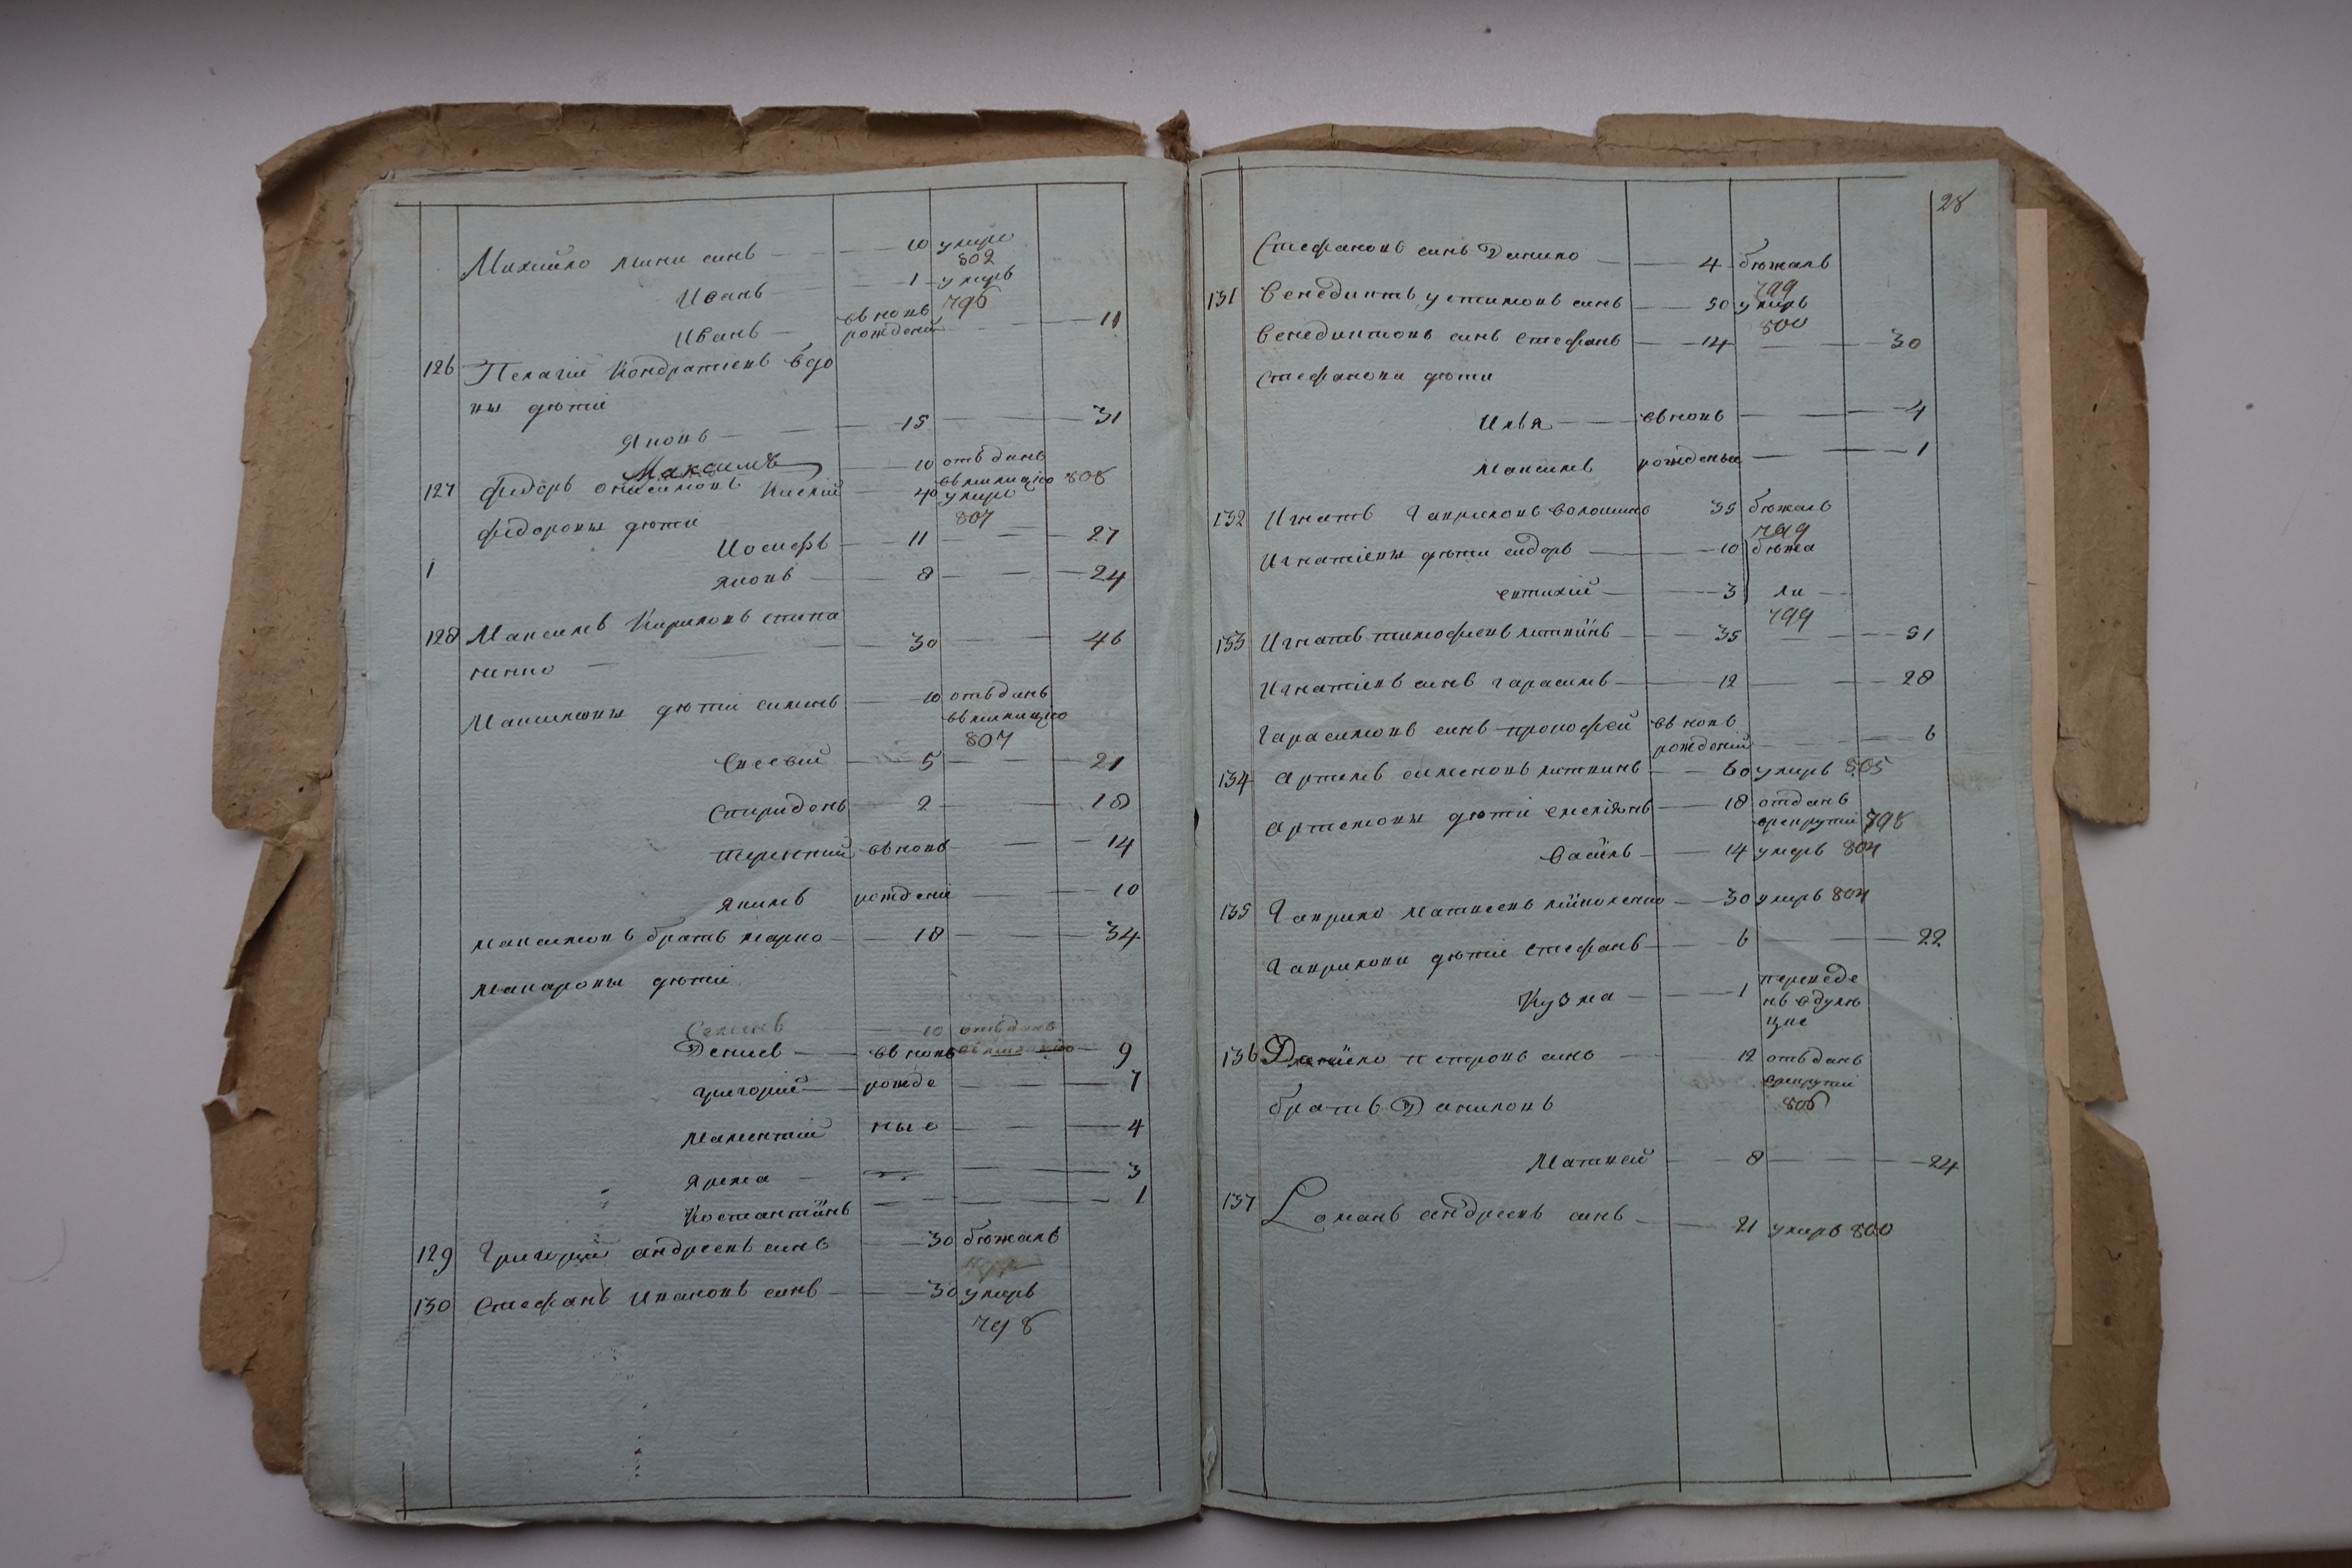 Михайло сынъ 10 умре
802
Иванъ 1 умеръ
796
Иванъ въ новъ рожденій 11
126 Пелагіи Кондратіевъ вдо
вы дѣти
Яковъ 15 31
Максимъ 10 отъданъ
въ милицію 808
127 Федоръ Кислій 40 умре
807
Федоровы дѣти
Иосифъ 11 27
1 Яковъ 8 24
128 Максимъ Кириловъ степа
ненко 30 46
Максимовы дѣти симонъ 10 отъданъ
въ милицію
807
Евсевій 5 21
Спиридонъ 2 18
терентий въ новъ 14
Якимъ рождени 10
максимовъ братъ марко 18 34
макаровы дѣти
Семенъ 10 отъданъ
Денисъ въ новъ 9
григорий рожде 7
мелентий ные 4
Ярема 3
Костантїнъ 1
129 Григорий андреевъ синъ 30 бѣжалъ
130 Стефанъ Ивановъ синъ 30 умеръ
798
28
Стефановъ синъ Данило 4 бѣжалъ
799
131 Венедиктъ устимовъ синъ 50 умеръ
800
Венедиктовъ синъ Стефанъ 14 30
Стефанови дѣти
Илья въ новъ 4
максимъ рожденые 1
132 Игнатъ Гавриловъ волошинъ 35 бѣжалъ
799
Игнатіевы дѣти сидоръ 10 бѣжа
евтихий 3 ли
799
133 Игнатъ тимофеевъ литвїнъ 35 51
Игнатіевъ синъ гарасимъ 12 28
Гарасимовъ синъ прокофей въ новъ
рожденій 6
134 Артемъ семеновъ литвинъ 60 умеръ 805
Артемовы дѣти емеліянъ 18 отданъ
врекрути 798
васїлъ 14 умеръ 804
135 Гаврило матвеевъ 30 умеръ 804
Гаврилови дѣти стефанъ 6 22
Кузма 1 переведе
нъ
136 Данїло петровъ синъ 12 отъданъ
врекрути
806
братъ Даниловъ
Матвей 8 24
137 Романъ андреевъ синъ 21 умеръ 800